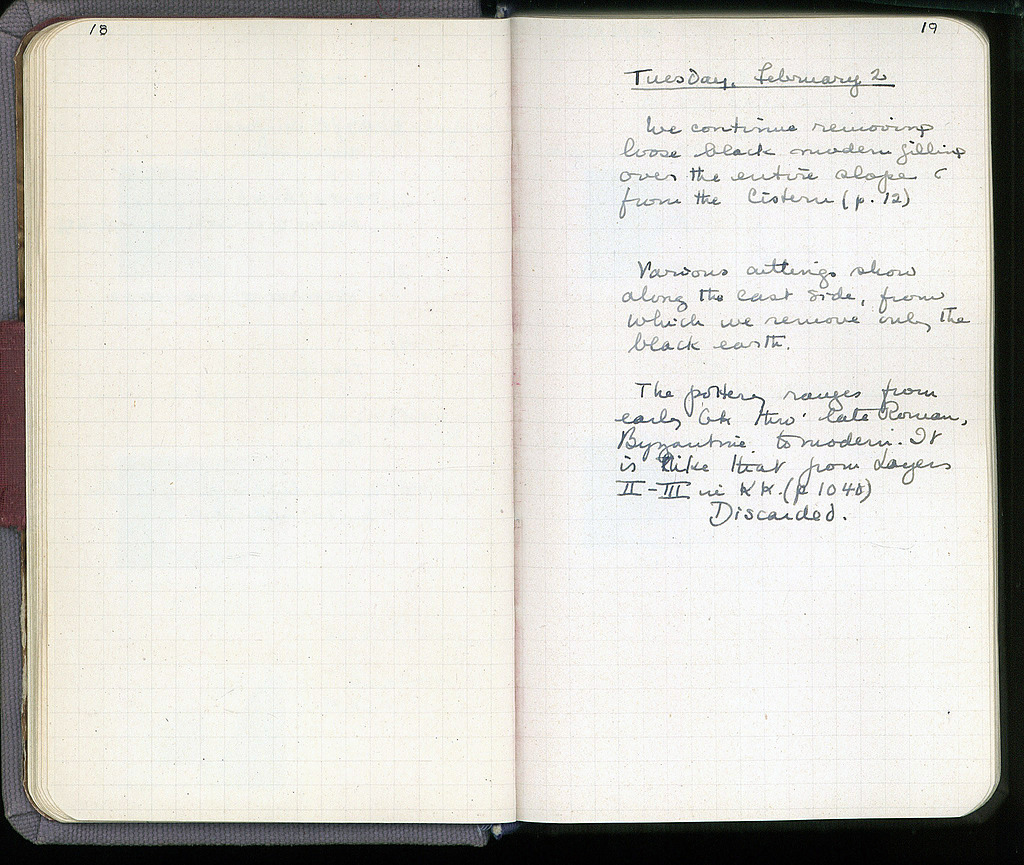 18
19
Tuesday, February 2
We continue removing
loose black modern filling
over the entire slope
from the Cistern (p. 12)
Various cuttings show
along the east side, from
which we remove only the
black earth.
The pottery ranges from
early Gk thro' late Roman,
Byzantine to modern. It
is like that from Layers
II-III in KK. (p
Discarded.